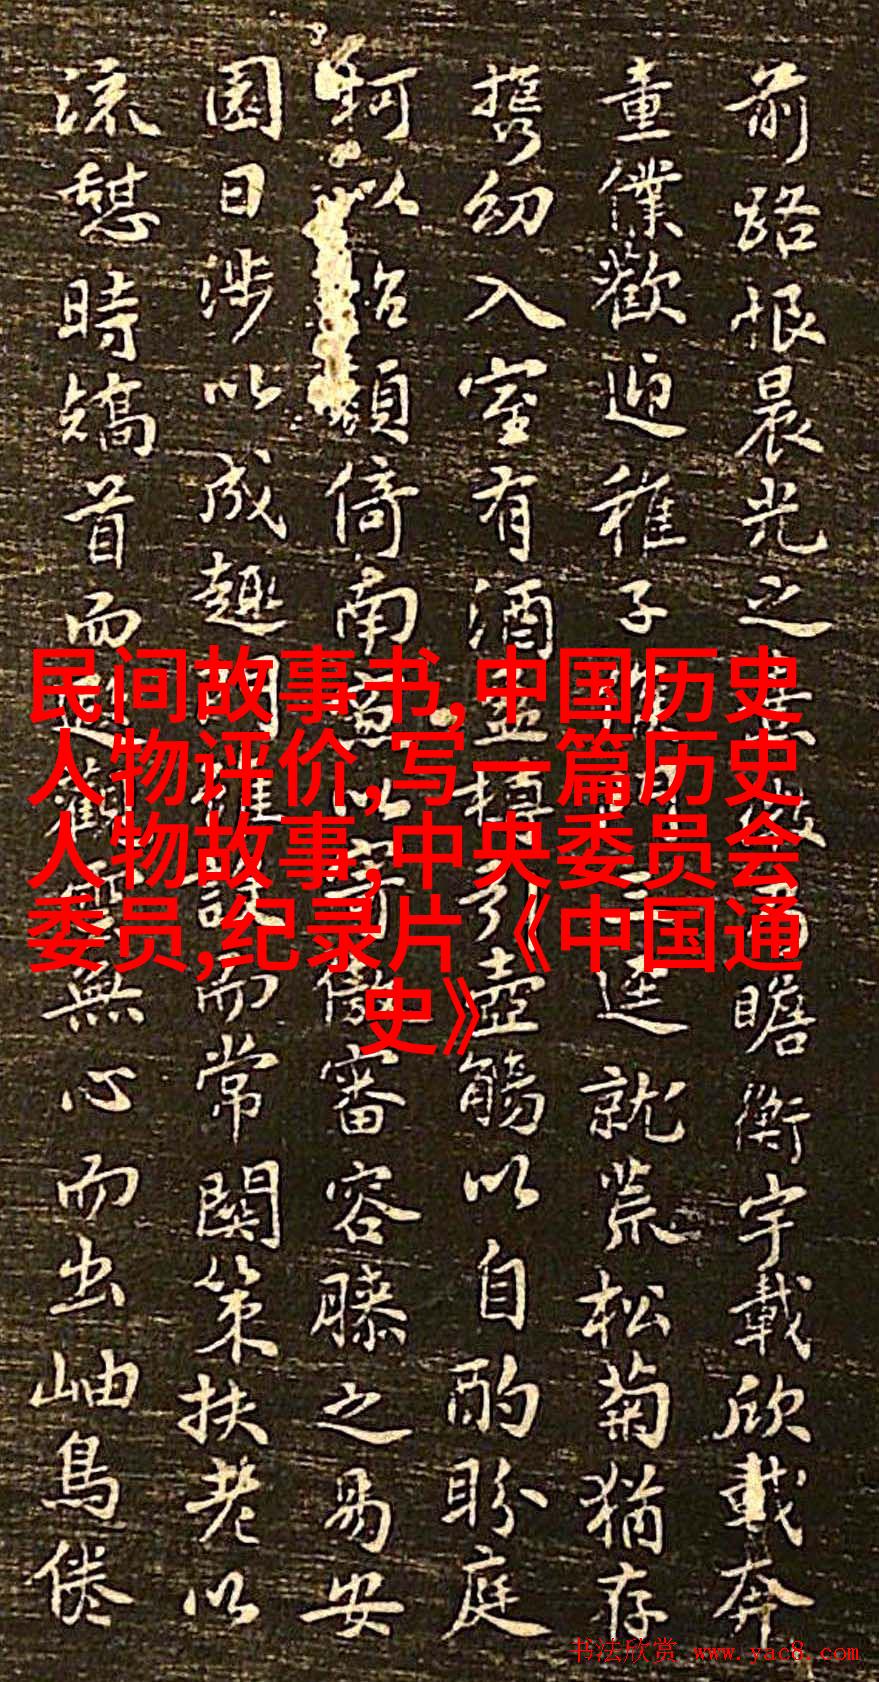 前路恨晨光之微瞻衡宇載欣載奔
童僕歡迎稚子候門三逕就荒松菊猶存
攜幼入室有酒盈樽引壺觴以自酌盼庭
柯以怡顏倚南窓以寄傲審容膝之易安
園日涉以成趣門雖設而常關策扶老以
流憩時矯首而遐觀雲無心而出岫鳥倦
民间故事书,中国历史
人物评价,写一篇历史
人物故事,中央委员会
委员,纪录片《中国通
史》
书法欣赏 www.yac8.com